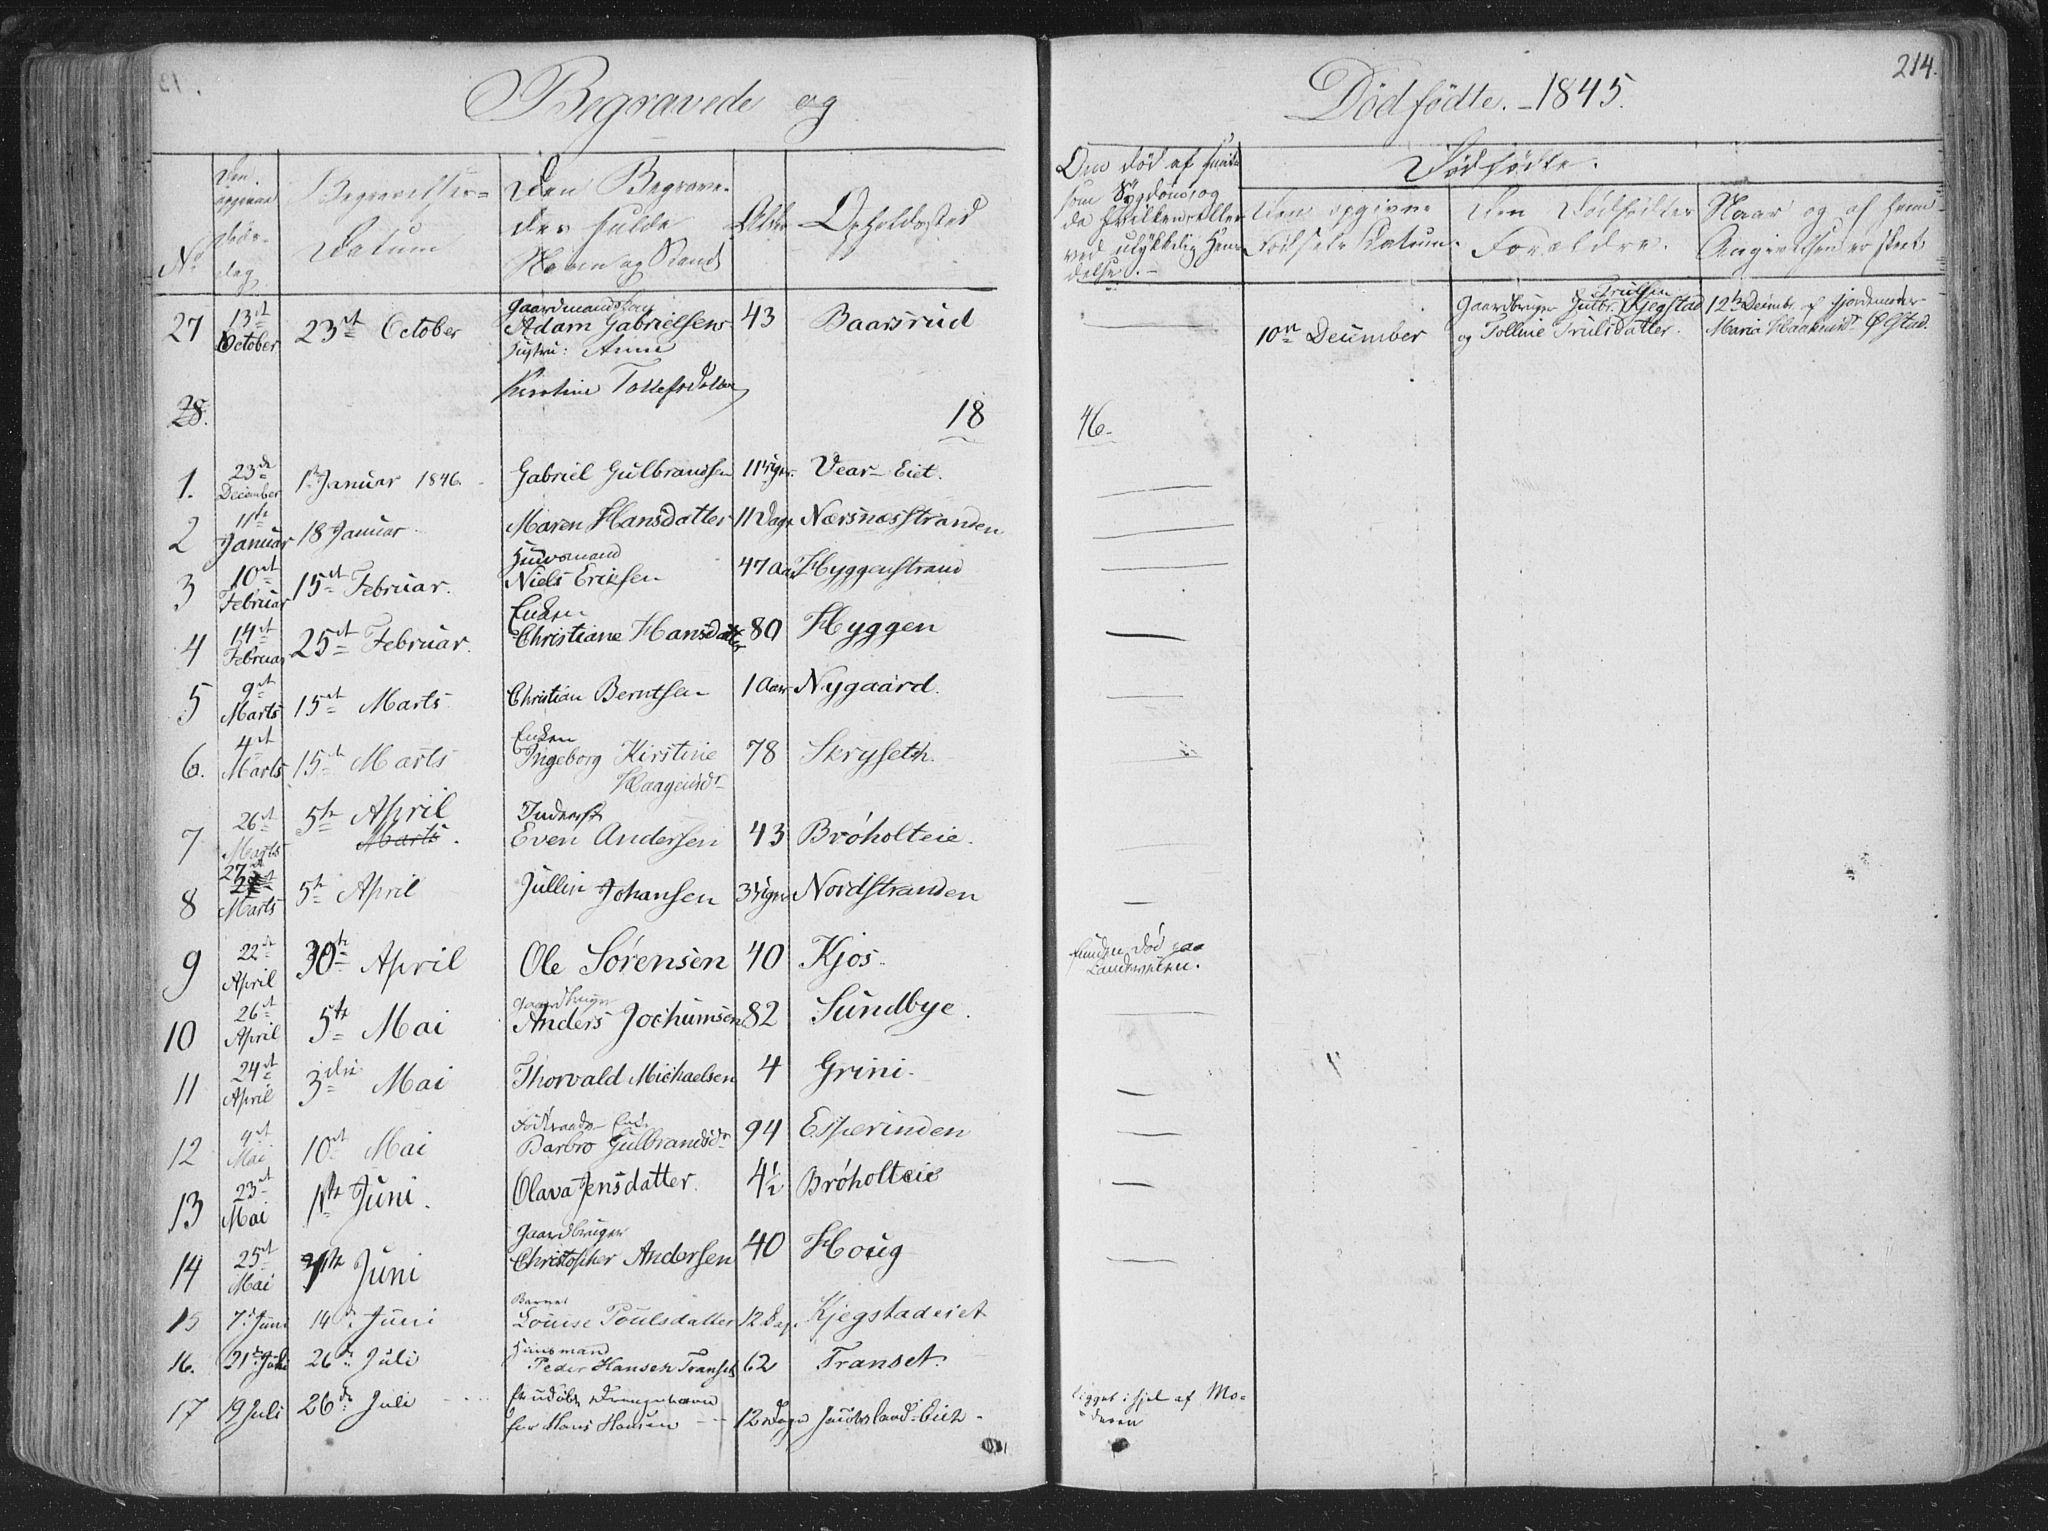 Begravede og
Dødfødte. - 1845.
214.
No
Den opgivne Døds-dag
Begravelses-Datum
Den Begravedes fulde Navn og Stand
Alder
Opholdssted
Om død af smitsom Sygdom, og da hvilken, eller ved ulykkelig Hændelse. -
Dødfødte.
Den opgivne Fødsels Datum.
Den Dødfødtes Forældre.
Naar og af hvem Angivelsen er skeet
27 13de October 23de October Gaardmandskone Adam Gabrielsens Hustru: Anne Kirstine Tollefsdatter 43 Baarsrud
10de December Gaardbruger Gulbr. Trulsen Kjegstad og Tolline Trulsdatter. 12te Decembr. af Gjordemoder Maria Haakensdr Øgstad.
28. 18 46.
1. 23de December 1te Januar 1846. Gabriel Gulbrandsen 11 Uger. Vear-Eiet.
2 11te Januar 18 Januar Maren Hansdatter 11 Dage Nærsnæsstranden
3 10de Februar 15de Februar. Huusmand Niels Eriksen 47 Aar Hyggenstrand
4 14de Februar 25de Februar. Enken Christiane Hansdatter 80 Hyggen
5 9de Marts 15de Marts Christian Berntsen 1 Aar Nygaard.
6. 4de Marts 15de Marts Enken Ingeborg Kirstine Haagensdr 78 Skryseth.
7 26de Marts 5te April Marts. Inderst Even Andersen 43 Brøholteie.
8 27de Marts 5te April Jullin Johansen 3 Uger Nordstranden
9 22de April 30te April Ole Sørensen 40 Kjos. funden død paa Landeveien.
10 26de April 5te Mai Gaardbruger Anders Jochumsen 82 Sundbye.
11 24de April 3die Mai Thorvald Michaelsen 4 Grini.
12 4de Mai 10de Mai Enke Barbro Gulbrandsdr 94 Esperinden
13 23de Mai 1te Juni. Olava Jensdatter. 4½ Brøholteie
14 25de Mai 1te Juni Gaardbruger Christopher Andersen 40 Houg
15 7de Juni 14de Juni Barnet Louise Poulsdatter 12 Dag. Kjegstadeiet
16. 21de Juli 26de Juli Huusmand Peder Hansen Transet 62 Transet.
17 19 Juli 26de Juli Et udøbt Drengebarn for Hans Hansen 12 Dage Jacobsland-Eiet. ligget ihjel af Moderen